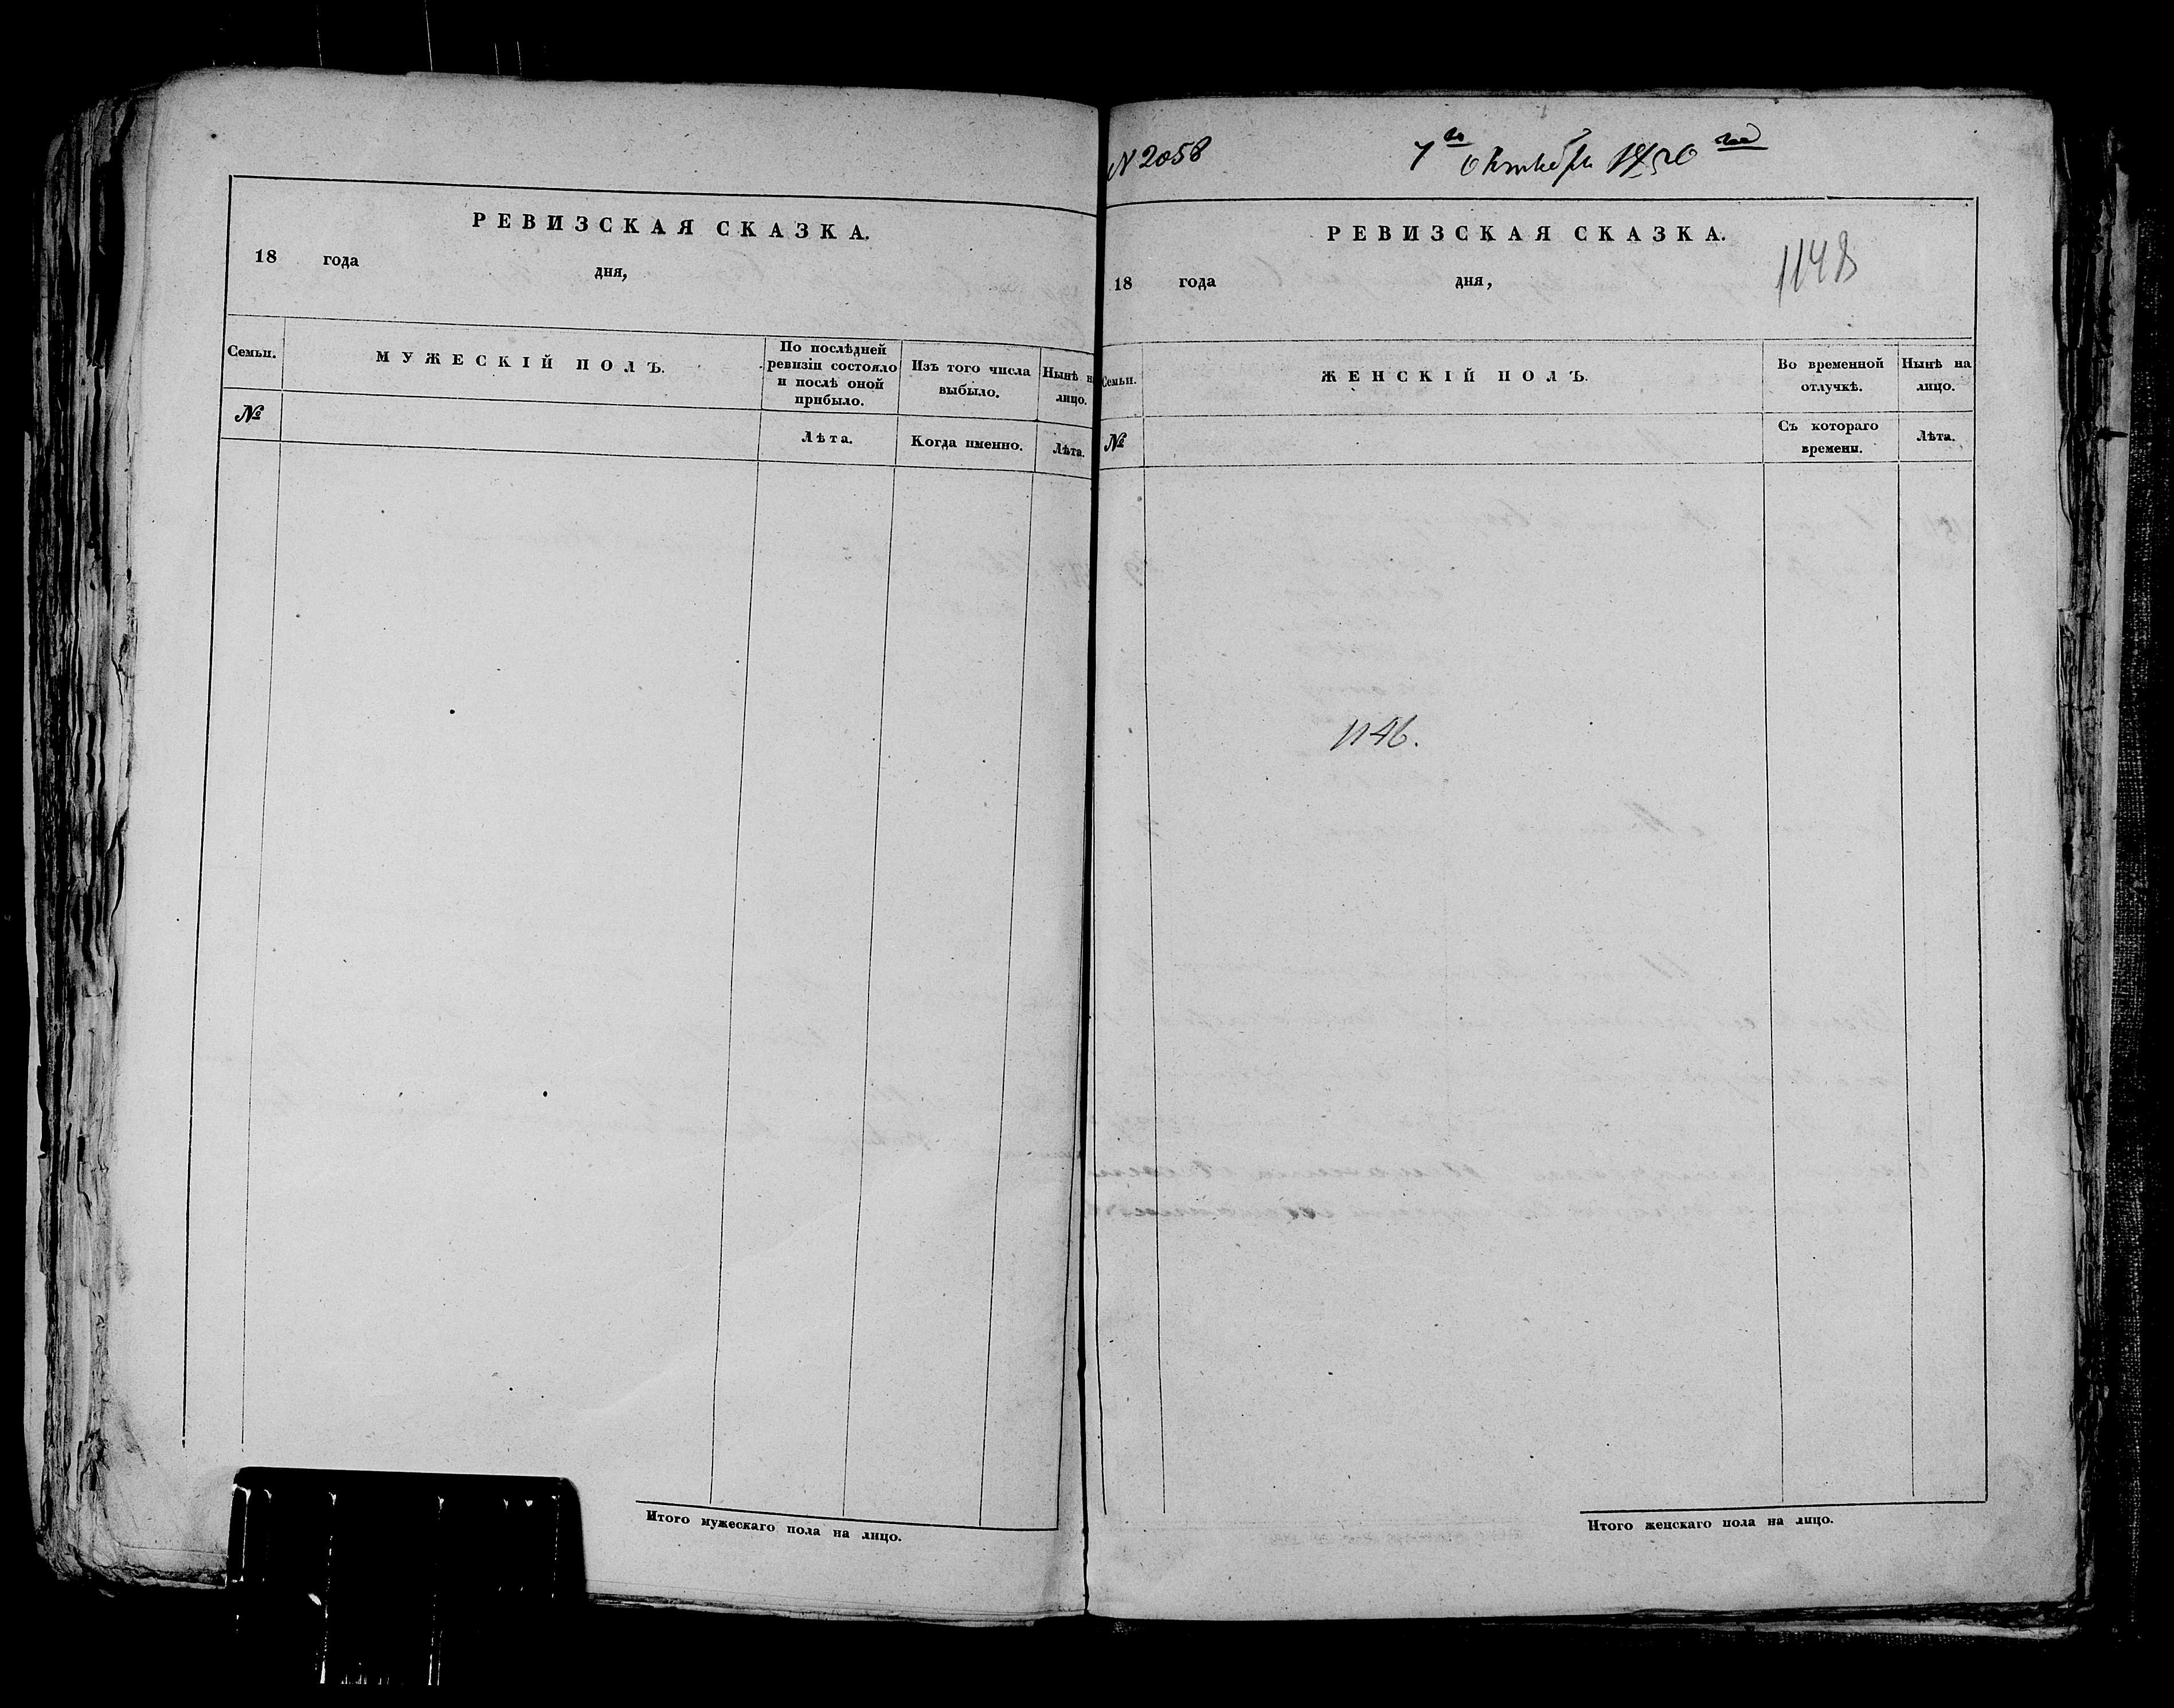 РЕВИЗСКАЯ СКАЗКА.
18 года дня,
Семьи.
МУЖЕСКІЙ ПОЛЪ.
По послѣдней
ревизіи состояло
и послѣ оной
прибыло.
Изъ того числа
выбыло.
Нынѣ на
лицо.
№
Лѣта.
Когда именно.
Лѣта.
Итого мужескаго пола на лицо.
N 2058
7го Октября 1850 года
РЕВИЗСКАЯ СКАЗКА.
1148
18 года дня,
Семьи.
ЖЕНСКІЙ ПОЛЪ.
Во временной
отлучкѣ.
Нынѣ на
лицо.
№
Съ котораго
времени.
Лѣта.
1146.
Итого женскаго пола на лицо.